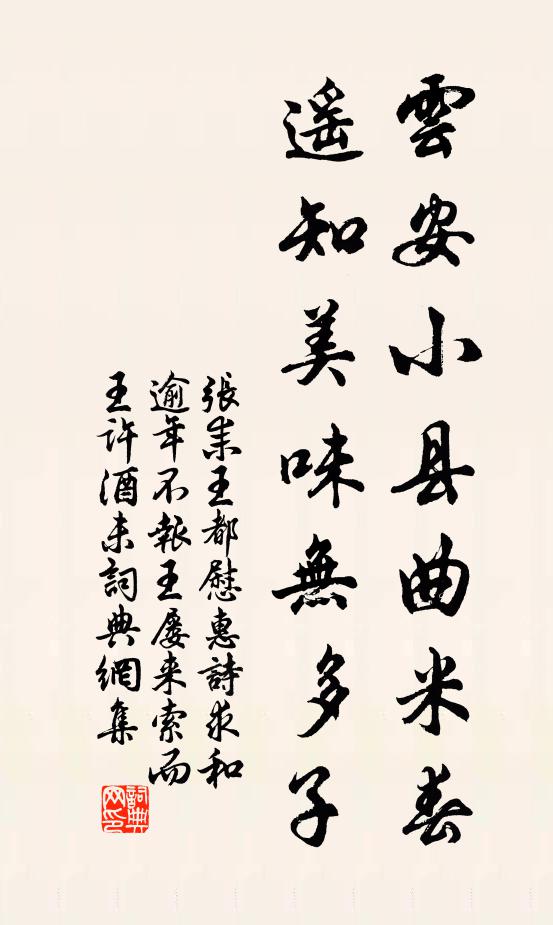 雲安小县曲米春
遥知美味無多子
張耒王都慰惠詩求和
逾年不報王屢来索而
王許酒未詞典網集
詞典网印